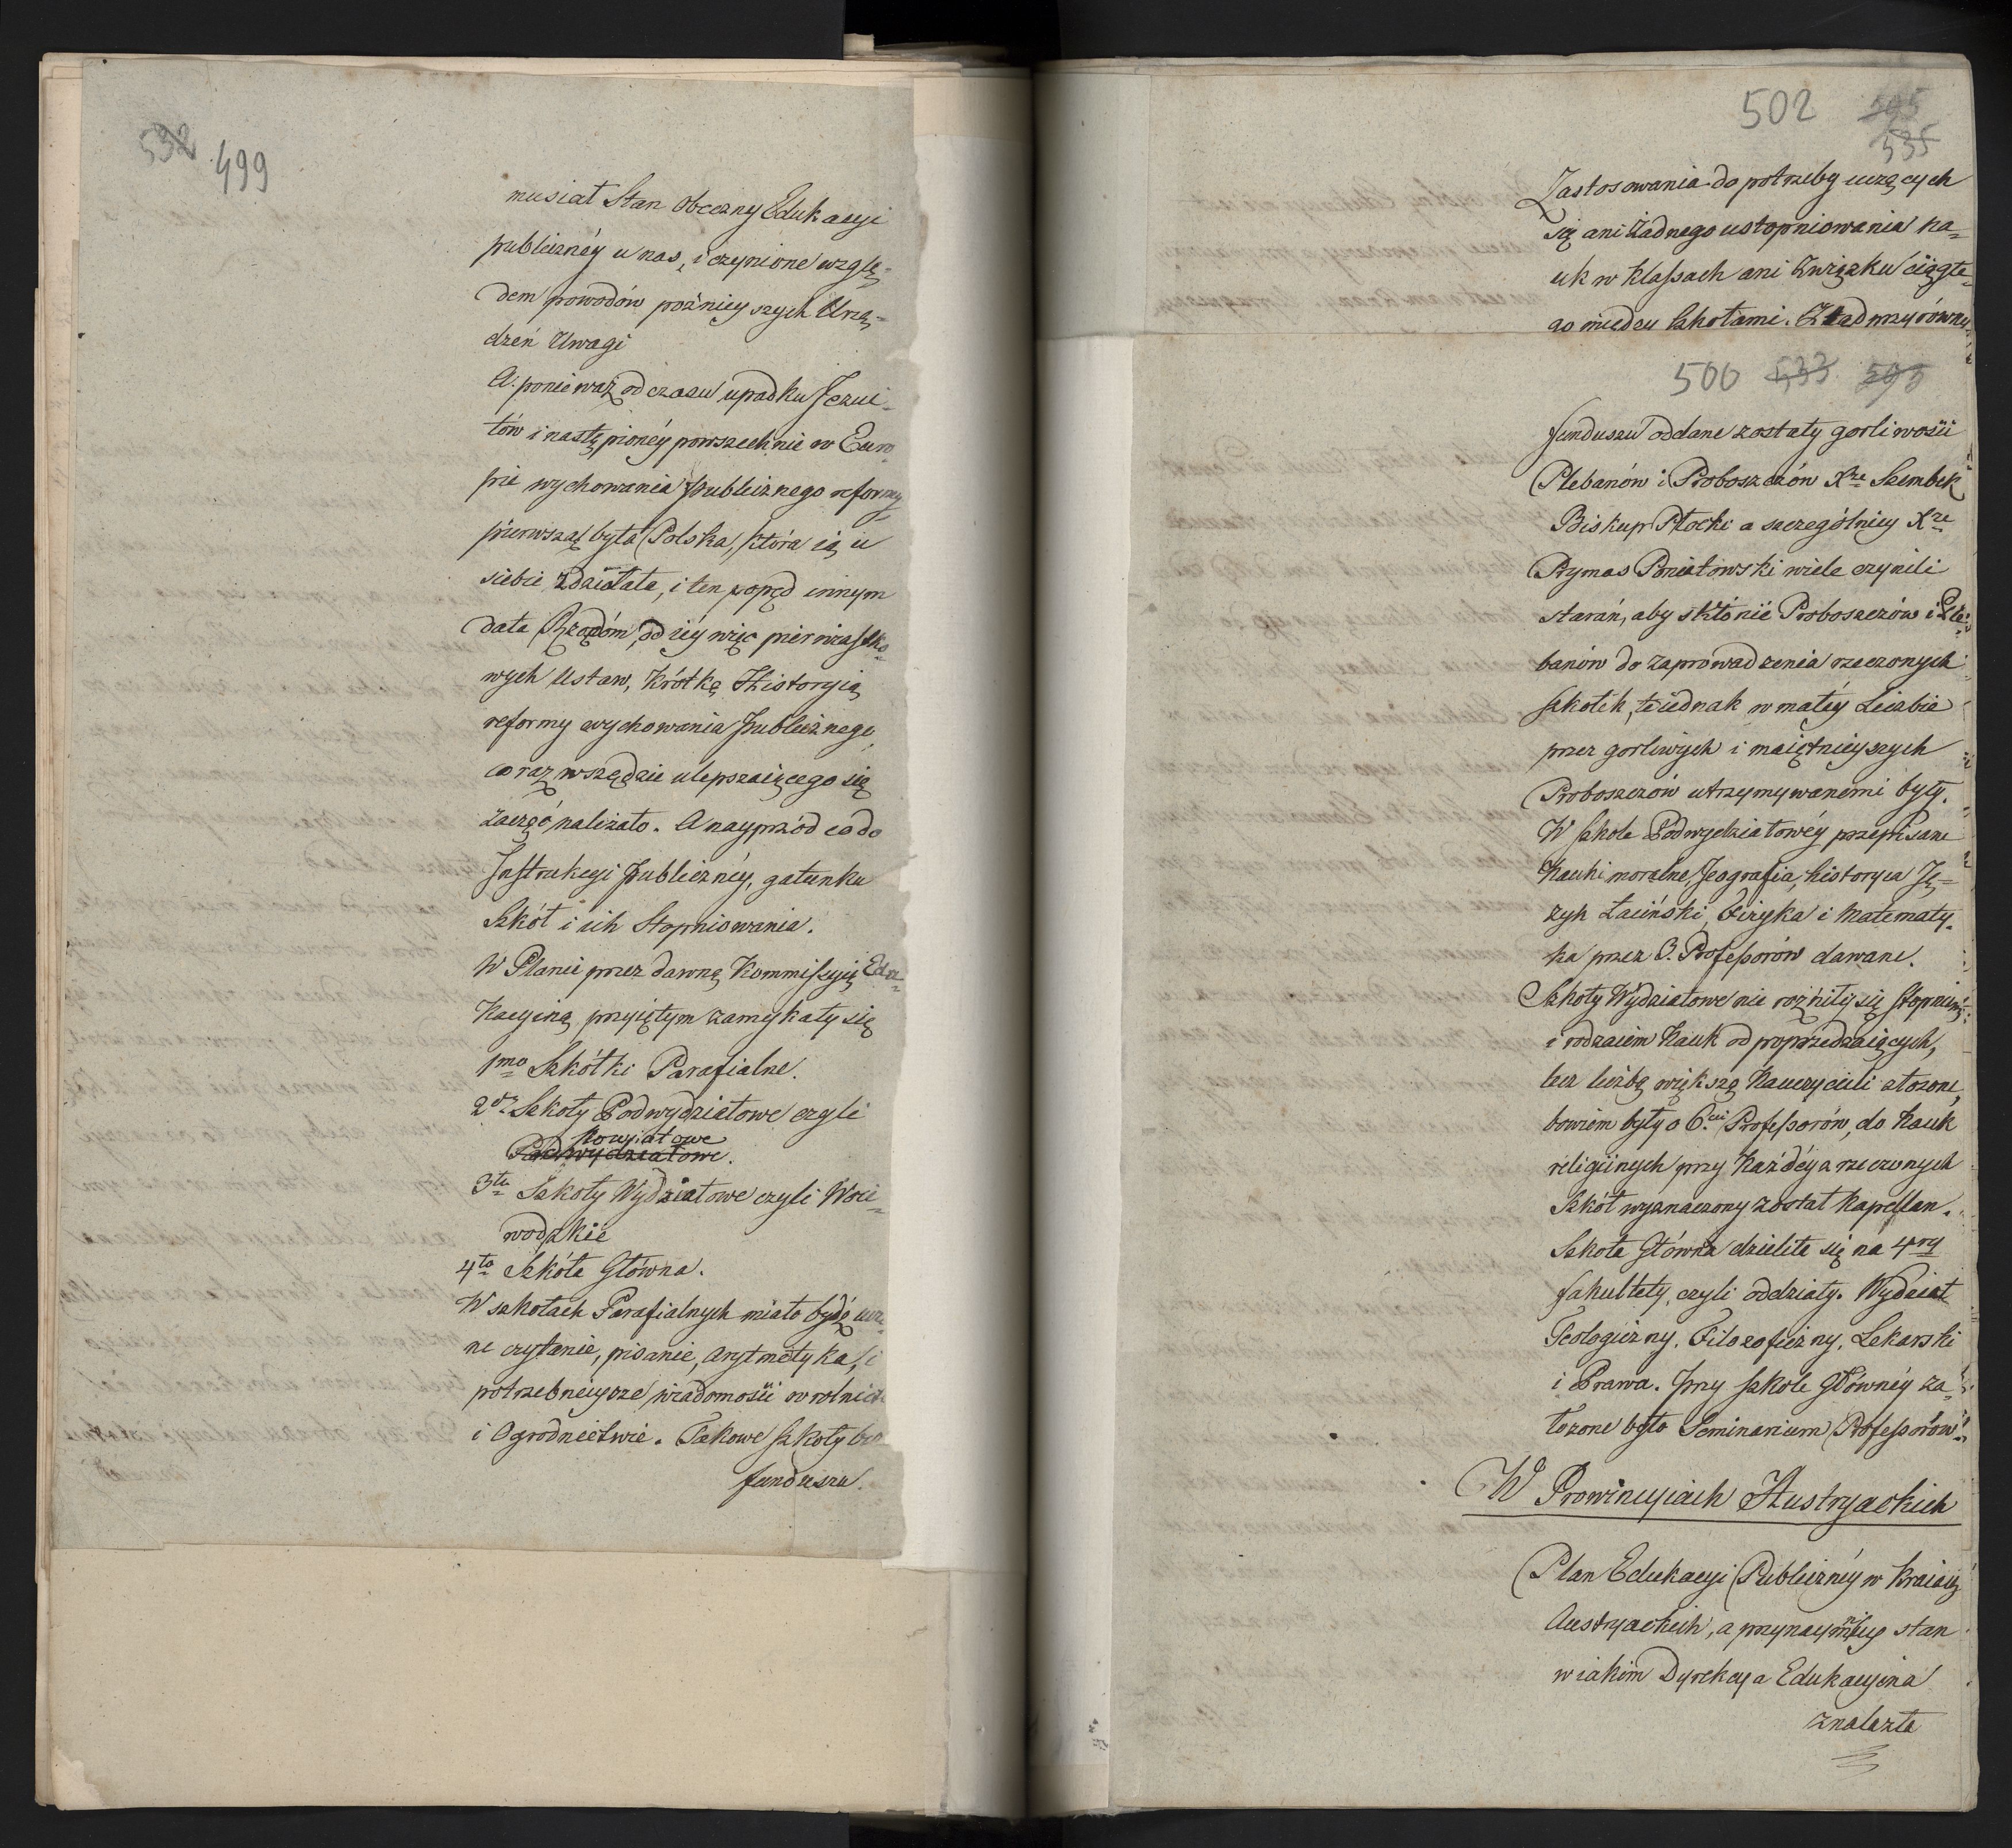 532 499
musiał Stan obecny Edukacyi
publiczney u nas, i czynione wzglę-
dem powodów poźnieyszych Urzą-
dzeń Uwagi
A. ponieważ od czasu upadku Jezui-
tów i nastąpioney powszechnie w Euro
pie wychowania publicznego reformy
pierwszą była Polska, która ią u
siebie zdziałała, i ten popęd innym
dała Rządóm, od iéy więc pierwiastko-
wych Ustaw, krótką Historyią
reformy wychowania publicznego,
coraz wszędzie ulepszaiącego się
zacząć należało. A nayprzód co do
Instrukcyi publiczney, gatunku
Szkół i ich Stopniowania.
W Planie przez dawną Kommissyią Edu-
kacyiną przyiętym zamykały się
1mo Szkółki Parafialne.
2do Szkoły Podwydziałowe czyli
Powiatowe
Podwydziałowe.
3tio Szkoły Wydziałowe czyli Woie-
wodzkie
4to Szkóła Główna.
W szkołach Parafialnych miało bydź uczo-
ne czytanie, pisanie, Arytmetyka, i
potrzebnieysze wiadomości w rolnict
i Ogrodnictwie. Takowe szkoły bez
funduszu.
502 505
535
Zastosowania do potrzeby uczących
się ani żadnego ustopniowania na-
uk w Klassach ani Związku ciągłe-
go miedzy Szkołami. Zkąd przyrówny
500 533 503
funduszu oddane zostały gorliwości
Plebanów i Proboszczów Xże Szembek
Biskup Płocki a szczególniey Xże
Prymas Poniatowski wiele czynili
starań, aby skłonić Proboszczów i Ple-
banów do zaprowadzenia rzeczonych
szkółek, te iednak w małéy Liczbie
przez gorliwych i maiętnieyszych
Proboszczów utrzymywanemi były.
W szkole Podwydziałowéy przepisane
Nauki moralne, Jeografia, historya Ję-
zyk Łaciński, Fizyka i Matematy-
ka przez 3. Professorów dawane.
Szkoły Wydziałowe nie rożniły się stopniem
i rodzaiem Nauk od poprzedzaiących,
lecz liczbą większą Nauczycieli złożone,
bowiem były o 6.ciu Professorów, do Nauk
religiinych przy każdéy z rzeczonych
Szkół wyznaczony został Kapellan.
Szkoła Główna dzieliła się na 4ry
fakultety, czyli oddziały. Wydział
Teologiczny. Filozoficzny, Lekarski
i Prawa. Przy szkole Główney za-
łożone było Seminarium Professorów.
W Prowincyiach Austryackich
Plan Edukacyi Publiczney w kraiach
Austryackich, a przynaymniey stan
w iakim Dyrekcya Edukacyina
znalazła